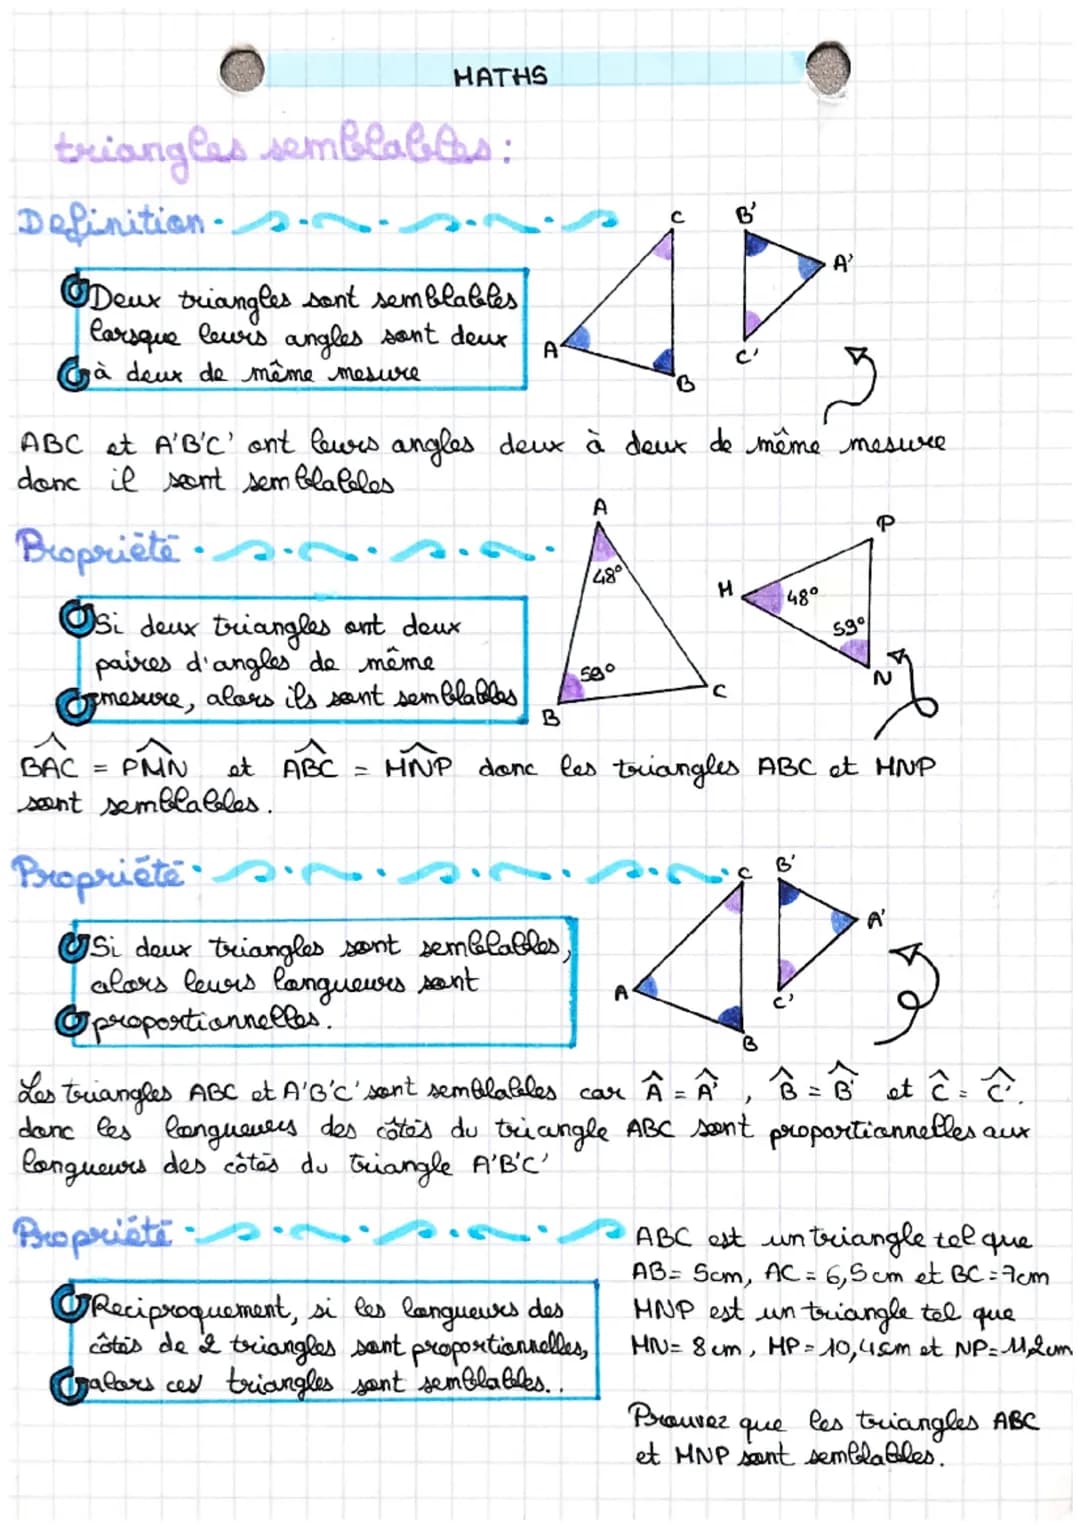 MATHS
triangles semblables :
Definition
Deux triangles sont semblables
lorsque leurs angles sont deux
à deux de même mesure
C
A
B
B'
A'
C'
ABC et A'B'C' ont leurs angles deux à deux de même mesure
donc il sont semblables
Propriété
Si deux triangles ont deux
paires d'angles de même
mesure, alors ils sont semblables
A
48°
59°
B
C
P
M
48°
59°
N
BAC = PMN et ABC = MNP donc les triangles ABC et MNP
sont semblables.
Propriété
Si deux triangles sont semblables,
alors leurs longueurs sont
proportionnelles.
C
A
B
B'
A'
C'
Les triangles ABC et A'B'C' sont semblables car Â = Â', B̂ = B̂' et Ĉ = Ĉ'.
donc les longueuers des côtés du triangle ABC sont proportionnelles aux
longueurs des côtés du triangle A'B'C'
Propriété
Reciproquement, si les longueurs des
côtés de 2 triangles sont proportionnelles,
alors ces triangles sont semblables..
ABC est un triangle tel que
AB= 5cm, AC = 6,5 cm et BC = 7cm
MNP est un triangle tel que
MN= 8 cm, MP = 10,4cm et NP= 11,2cm
Prouvez que les triangles ABC
et MNP sont semblables.